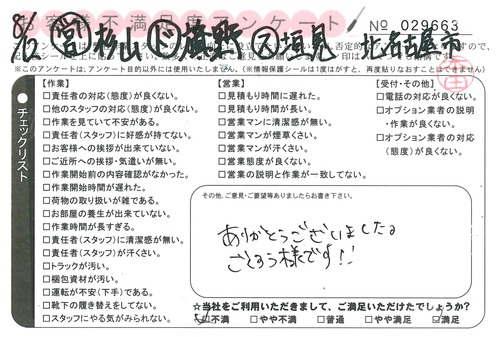 お客様不満足度アンケート
No 029663
8/12 営 杉山 ド 磯野 ス 垣見 北名古屋市
(※このアンケートは、アンケート目的以外には使用いたしません。(※情報保護シールは1度はがすと、再度貼りなおすことはできません)
チェックリスト
【作業】
□責任者の対応(態度)が良くない。
□他のスタッフの対応(態度)が良くない。
□作業を見ていて不安がある。
□責任者(スタッフ)に好感が持てない。
□お客様への挨拶が出来ていない。
□ご近所への挨拶・気遣いが無い。
□作業開始前の内容確認がなかった。
□作業開始時間が遅れた。
□荷物の取り扱いが雑である。
□お部屋の養生が出来ていない。
□作業時間が長すぎる。
□責任者(スタッフ)に清潔感が無い。
□責任者(スタッフ)が汗くさい。
□トラックが汚い。
□梱包資材が汚い。
□運転が不安(下手)である。
□靴下の履き替えをしてない。
□スタッフにやる気がみられない。
【営業】
□見積もり時間に遅れた。
□見積もり時間が長い。
□営業マンに清潔感が無い。
□営業マンが煙草くさい。
□営業マンが汗くさい。
□営業態度が良くない。
□営業の説明と作業が一致してない。
【受付・その他】
□電話の対応が良くない。
□オプション業者の説明
・作業が良くない。
□オプション業者の対応
(態度)が良くない。
その他、ご意見・ご要望等ありましたらお書き下さい。
ありがとうございました。
ごくろう様です!!
☆当社をご利用いただきまして、ご満足いただけたでしょうか?
□不満 □やや不満 □普通 □やや満足 □満足